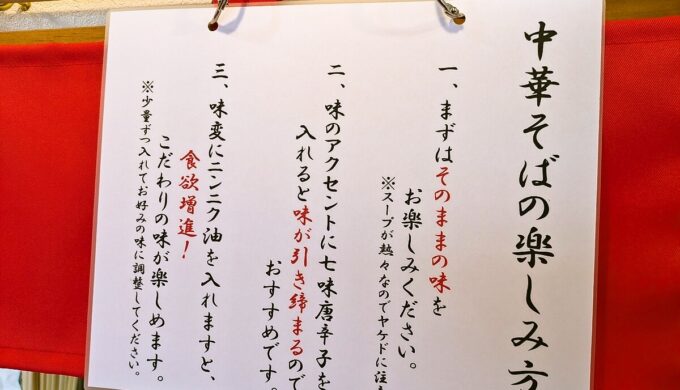 中華そばの楽しみ方
一、まずはそのままの味を
お楽しみください。
※スープが熱々なのでヤケドに注
二、味のアクセントに七味唐辛子を
入れると味が引き締まるので
おすすめです。
三、味変にニンニク油を入れますと、
食欲増進!
こだわりの味が楽しめます。
※少量ずつ入れてお好みの味に調整してください。